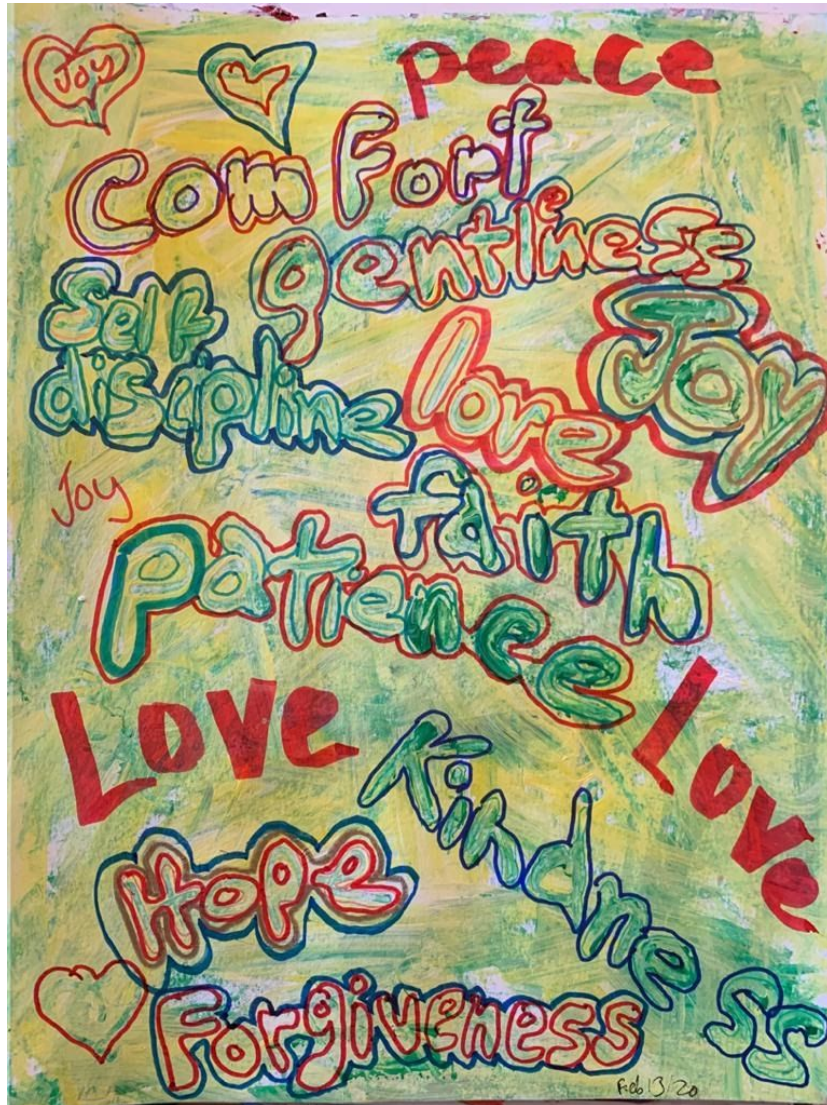 Joy
peace
Comfort
gentleness
Self
discipline
love
Joy
Joy
faith
patience
Love
Love
Kindness
Hope
Forgiveness
Feb 13/20